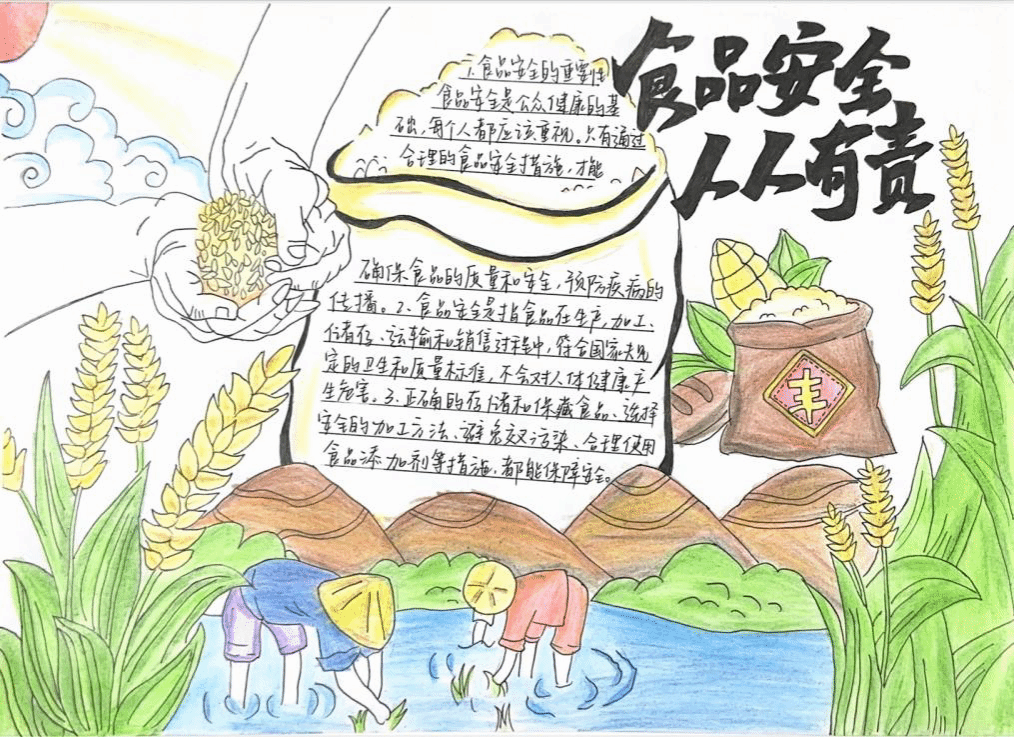 食品安全
人人有责
1.食品安全的重要性
食品安全是公众健康的基
础,每个人都应该重视。只有通过
合理的食品安全措施,才能
确保食品的质量和安全,预防疾病的
传播。2.食品安全是指食品在生产,加工、
储存、运输和销售过程中,符合国家规
定的卫生和质量标准,不会对人体健康产
生危害。3.正确的存储和保藏食品、选择
安全的加工方法、避免交叉污染、合理使用
食品添加剂等措施,都能保障安全。
丰